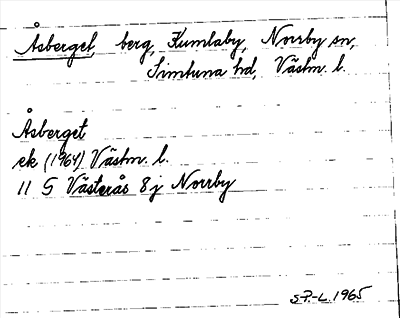 Åsberget, berg, Kumlaby, Norrby sn,
Simtuna hd, Västm. l.
Åsberget
ek (1964) Västm. l.
11 G Västerås 8j Norrby
S.P.-L. 1965